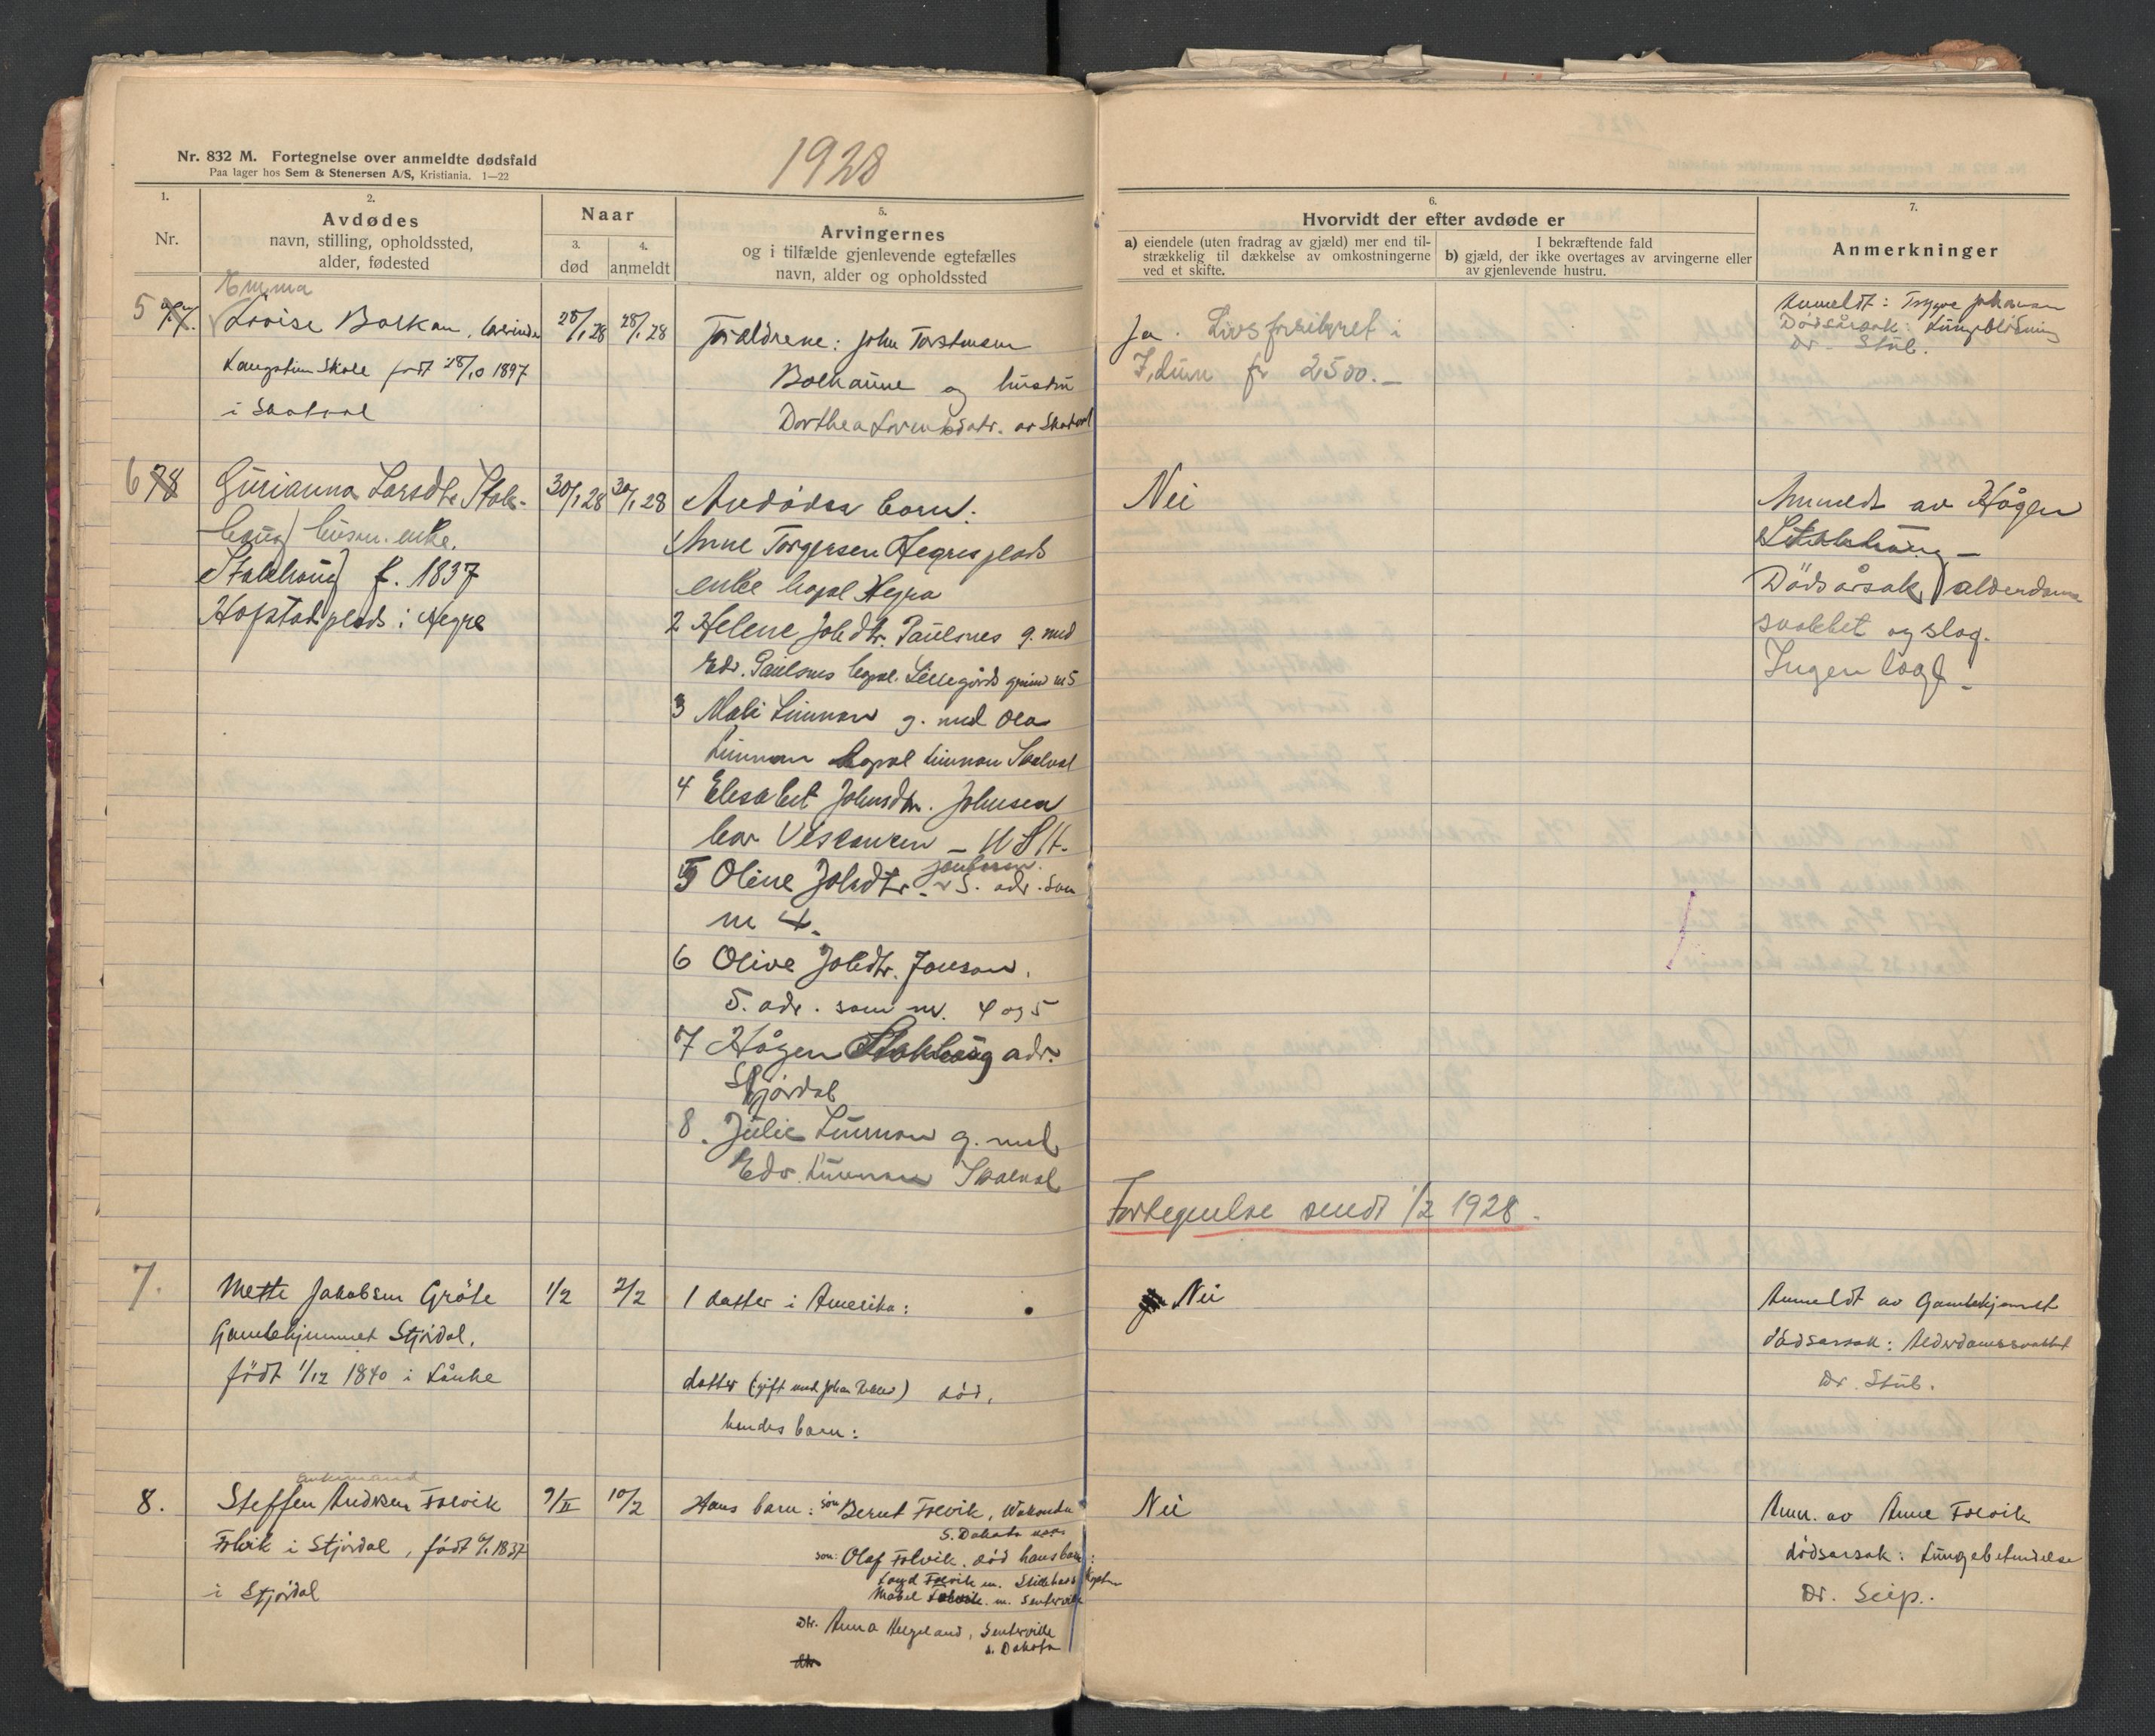 1928
Nr. 832 M. Fortegnelse over anmeldte dødsfald
Paa lager hos Sem & Stenersen A/S, Kristiania. 1—22
1.
Nr.
2.
Avdødes
navn, stilling, opholdssted,
alder, fødested
Naar
3.
død
4.
anmeldt
5.
Arvingernes
og i tilfælde gjenlevende egtefælles
navn, alder og opholdssted
6.
Hvorvidt der efter avdøde er
a) eiendele (uten fradrag av gjæld) mer end til-
strækkelig til dækkelse av omkostningerne
ved et skifte.
I bekræftende fald
b) gjæld, der ikke overtages av arvingerne eller
av gjenlevende hustru.
7.
Anmerkninger
5
Emma
Lovise Bolkan,
Skole født 28/10 1897
i Skatval
28/1 28
28/1 28
Forældrene: John
og hustru
Dorthea Lorentsdatr. av Skatval
Ja. Livsforsikret i
Idun fr 2500.—
Anmeldt: Trygve Johansen
Dødsårsak: Lungeblødning
Dr. Stüb.
6 78
Gurianna Larsdtr Stok-
haug husm. enke.
Stokhaug f. 1837
Hofstadplads i Hegre
30/1 28
30/1 28
Avdødes barn:
Anne Torgersen Hegresplads
enke bopæl Hegra
2 Helene Johdtr. Paulsnes g. med
Edv. Paulsnes bopæl.
3 Mali g. med Ola
bopæl Skatval
4 Elisabet Johnsdtr. Johnsen
bor
5 Oline Johdtr. S. adr. som
nr 4.
6 Olive Johdtr. Jonson.
S. adr. som nr. 4 og 5
7 Hågen Stokhaug adr.
Stjørdal
8. Julie g. med
Edv. Skatval
Nei
Anmeldt av Hågen
Stokhaug —
Dödsårsak, alderdoms
svakhet og slag.
Ingen lagt.
Fortegnelse sendt 1/2 1928.
7.
Mette Jakobsen Gröte
Gamlehjemmet Stjördal,
födt 1/12 1840 i Lånke
1/2
2/2
1 datter i Amerika:
datter (gift med Johan) död,
hendes barn:
Nei
Anmeldt av Gamlehjemmet
dödsarsak: Alderdomssvakhet
Dr. Stüb.
8.
Enkemand
Steffen Andersen Folvik
Folvik i Stjördal, født 6/1 1837
i Stjördal
9/II
10/2
Hans barn: sön Bernt Folvik, Wakonda
S. Dakota
son: Olaf Folvik. död hans barn:
Loyd Folvik m.
Mabel Folvik. m. Senterville
Dtr. Anna Helgeland, Senterville
S. Dakota
Dtr.
Nei
Anm. av Anne Folvik
dödsarsak: Lungebetendelse
Dr. Seip.